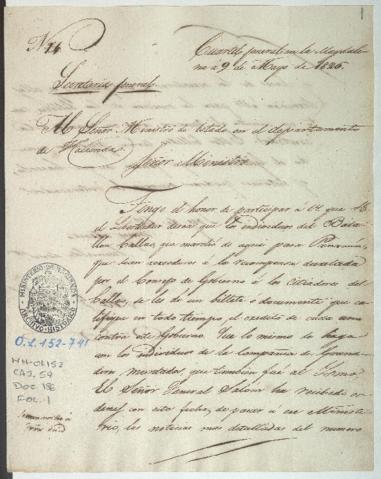 Nº 14
Cuartel general en la Magdale
na á 9 de Mayo de 1826.
Secretaria General
Al Señor Ministro de Estado en el departamento
de Hacienda
Señor Ministro
Tengo el honor de participar á U. que S.E.
el Libertador desea que los individuos del Bata
llon Callao que marchó de aquí para Panamá,
que sean acreedores á la recompensa decretada
por el Consejo de Gobierno á los sitiadores del
Callao, se les dé un billete ó documento que ca
lifique en todo tiempo el credito de cada uno
contra el Gobierno. Que lo mismo se haga
con los individuos de la Compañia de Granade
ros montados que también fué al Istmo
El Señor General Salom ha recibido or
denes con esta fecha, de pasar á ese Ministe
rio, las noticias mas detalladas del numero
MINISTERIO DE HACIENDA
ARCHIVO HISTORICO
O.L. 152-741
MH-OL152
CAJ. 59
DOC. 18
FOL. 1